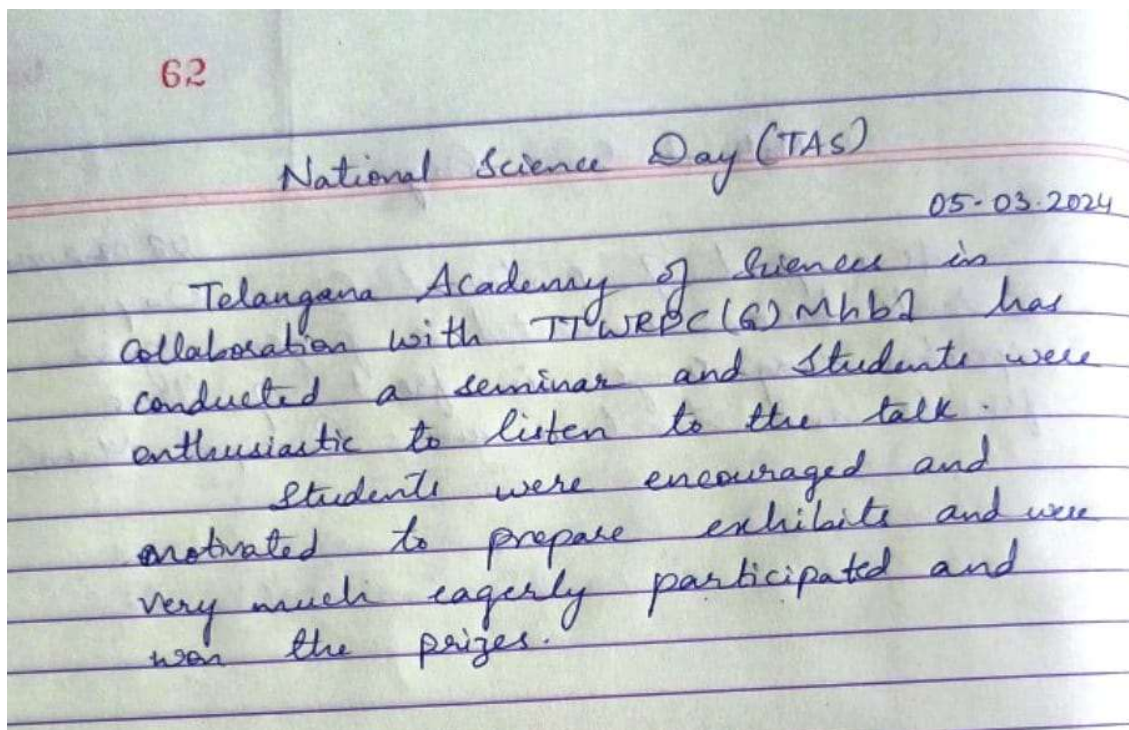 62
National Science Day (TAS)
05-03-2024
Telangana Academy of Sciences in
collaboration with TTWRDC(G) Mhbd has
conducted a seminar and students were
enthusiastic to listen to the talk.
Students were encouraged and
motivated to prepare exhibits and were
very much eagerly participated and
won the prizes.